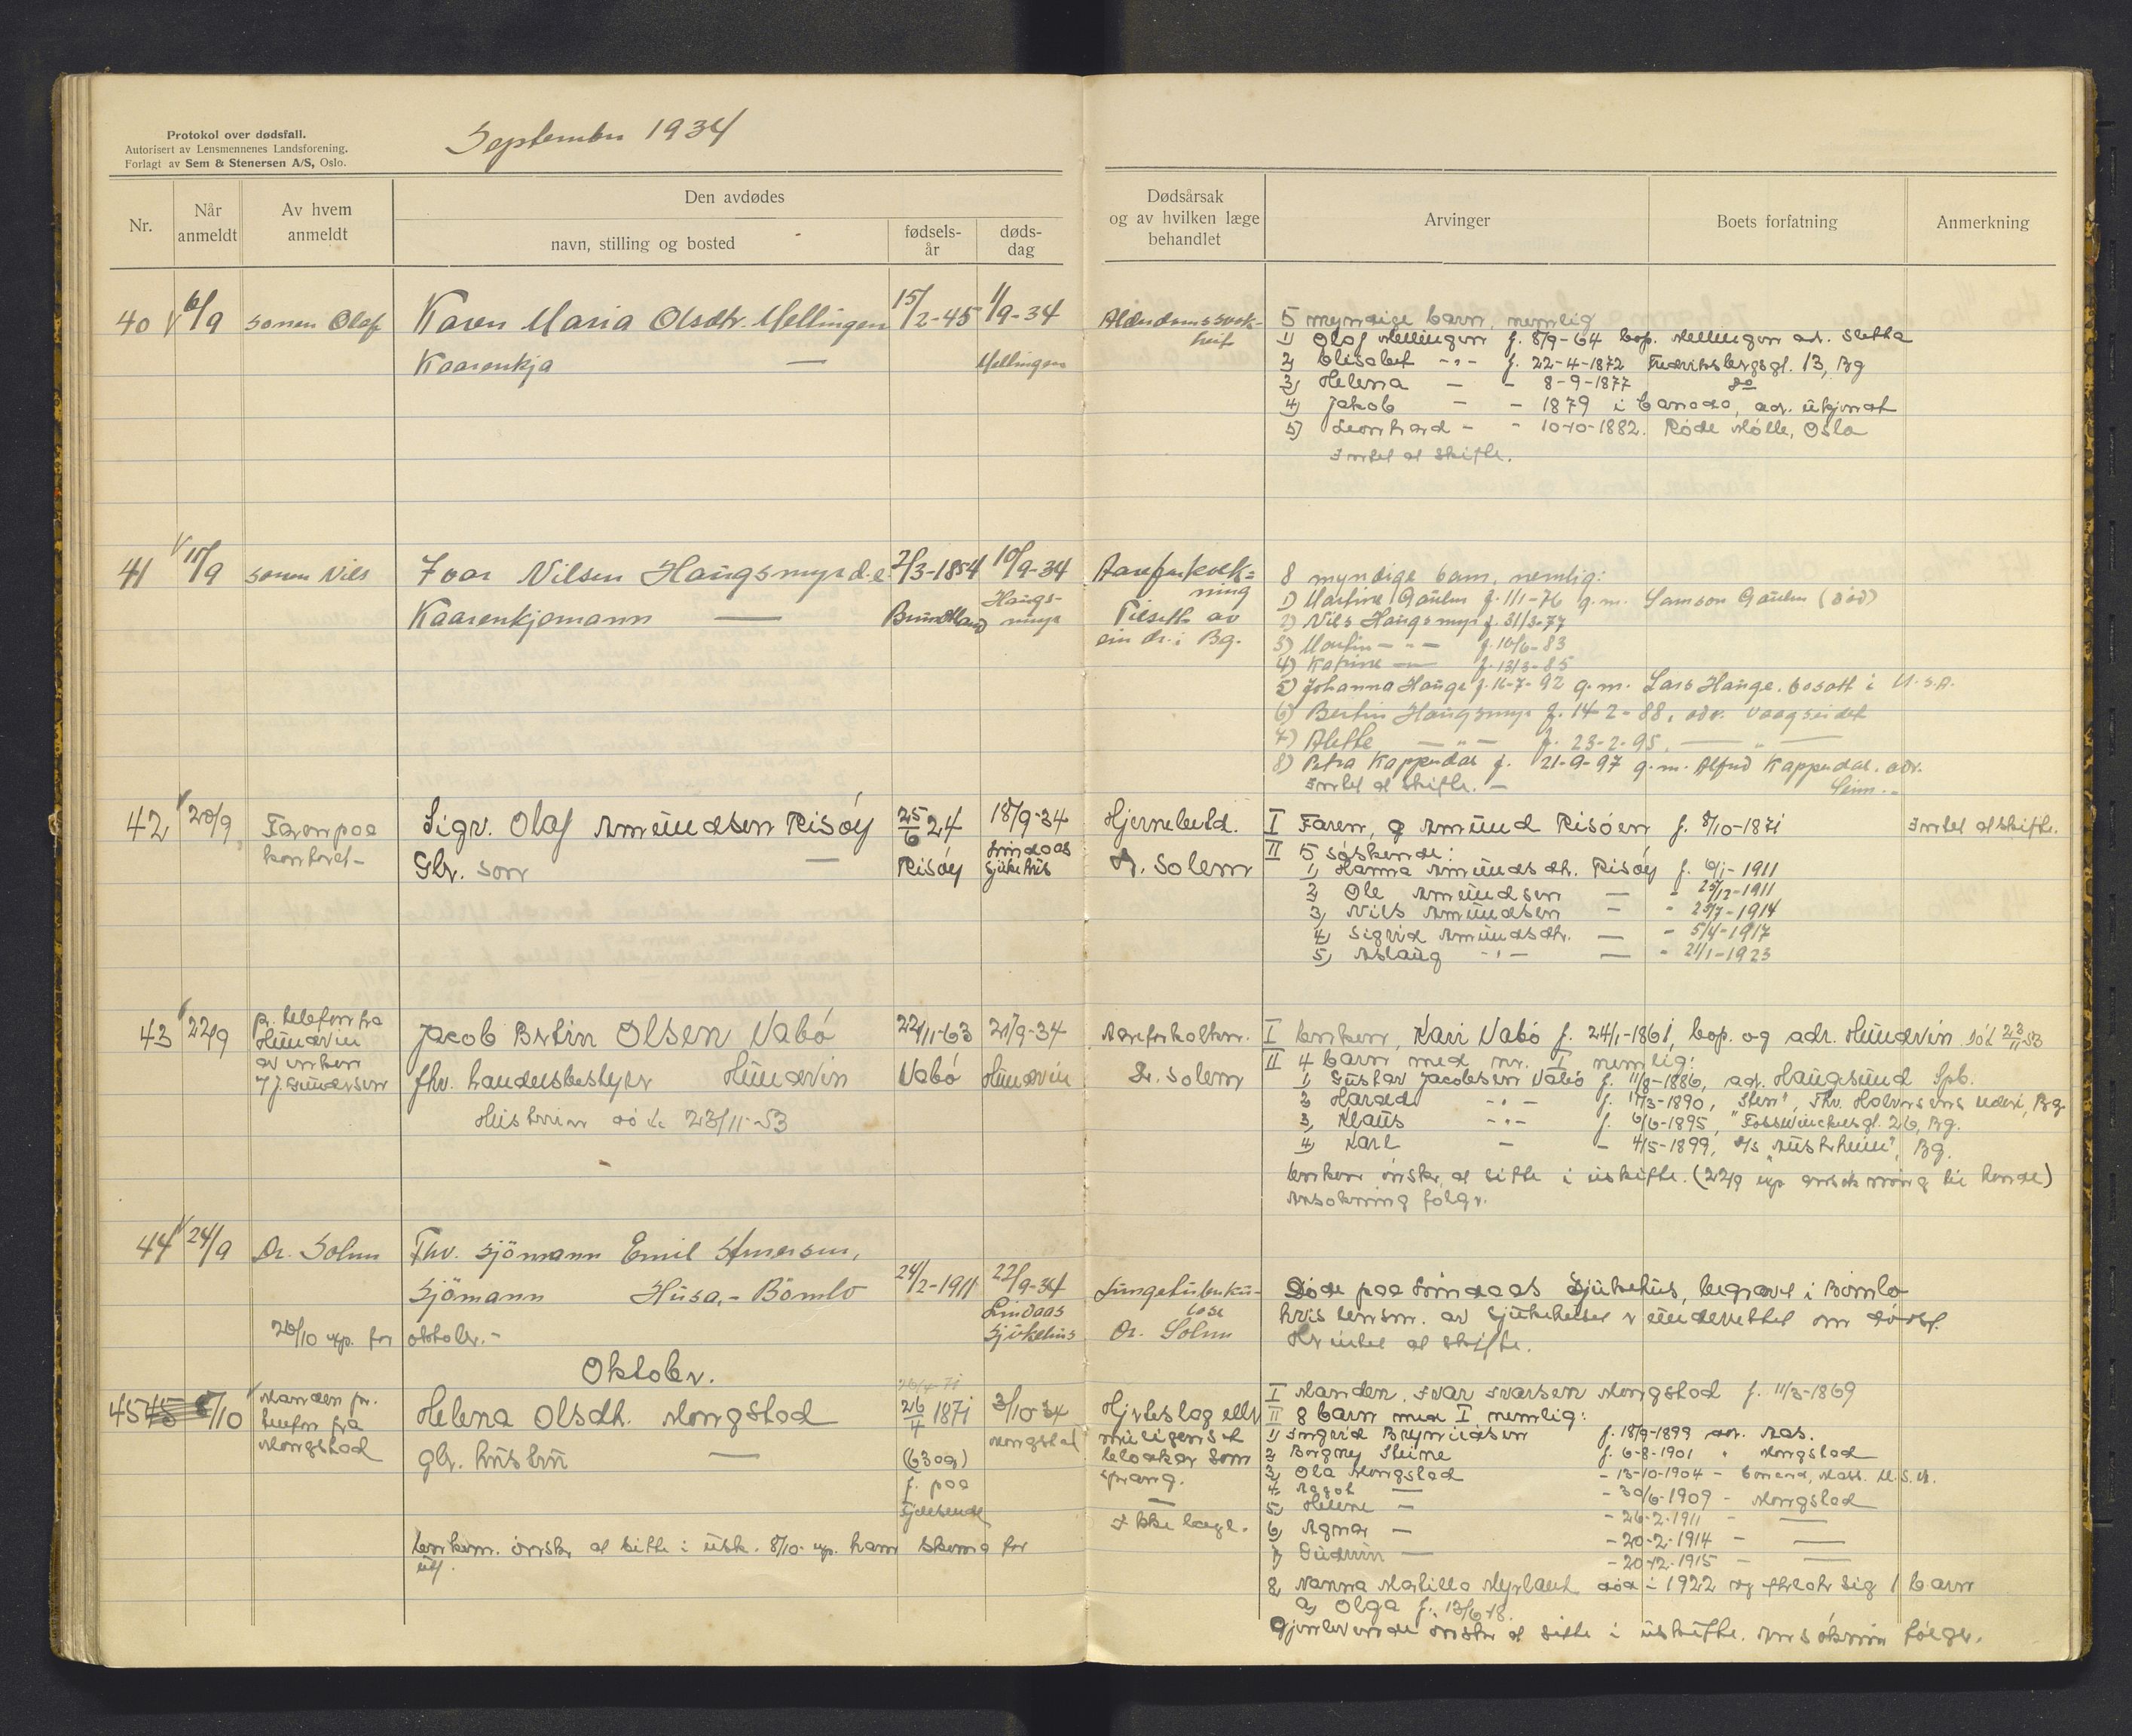 Protokol over dødsfall.
Autorisert av Lensmennenes Landsforening.
Forlagt av Sem & Stenersen A/S, Oslo.
September 1934
Nr.
Når anmeldt
Av hvem anmeldt
Den avdødes
navn, stilling og bosted
fødsels-år
døds-dag
Dødsårsak og av hvilken læge behandlet
Arvinger
Boets forfatning
Anmerkning
40 6/9 sonen Olaf Karen Maria Olsdtr. Mellingen 15/2-45 1/9-34
Kaarenkja — Mellingen
Alderdomssvek-
heit
5 myndige barn, nemlig
1) Olaf Mellingen f. 8/9-64 bop. Mellingen adr. Sletta
2) Elisabet -"- f. 22-4-1872 Fredriksbergsgt. 13, Bg
3) Helena - - 8-9-1877 do
4) Jakob - - 1879 i Canada, adr. ukjendt
5) Leonhard - - 10-10-1882. Røde Mølle, Oslo
Intet at skifte.
41 11/9 sonen Nils Ivar Nilsen Haugsmyr d.e. 2/3-1854 10/9-34
Kaarenkjemann — Haugs-
myr
Aareforkalk=
ning
Tilsett av
ein dr. i Bg.
8 myndige barn, nemlig:
1) Martine Gaulen f. 1/1-76 g.m. Samson Gaulen (død)
2) Nils Haugsmyr f. 31/3-77
3) Martin -"- f. 10/6-83
4) Katrine — f. 13/3-85
5) Johanna Hauge f. 16-7-92 g.m. Lars Hauge. bosatt i U.S.A.
6) Bertin Haugsmyr f. 14-2-88, adr. Vaagseidet
7) Alette —"— f. 23-2-95. —"—
8) Petra Kappendal f. 21-9-97 g.m. Alfred Kappendal. adr.
Seim.-
Intet at skifte. -
42 20/9 Faren paa Sigv. Olaf Amundsen Risøy 25/6 24 18/9-34
kontoret- Gbr. søn — Risøy Lindaas
sjukehus
Hjernebetd.
Dr. Solem
I Faren, g Amund Risøen f. 8/10-1871 Intet at skifte.
II 5 søskende:
1) Hanna Amundsdtr. Risøy f. 6/1-1911
2) Ole Amundsen — - 25/12-1911
3) Nils Amundsen - - 23/7-1914
4) Sigrid Amundsdtr. — - 5/4-1917
5) Aslaug -"- — - 21/1-1923
43 22/9 pr. telefon fra
Hundvin
av enken
v/J. Gundersen
Jacob Bertin Olsen Vabø 22/11-63 21/9-34
fhv. handelsbestyrer Hundvin Vabø Hundvin
Hustruen død 23/11-53
Aareforkalkn.
Dr. Solem
I Enken, Kari Vabø f. 24/1-1861, bop. og adr. Hundvin død 23/11 53
II 4 barn med nr. I nemlig:
1) Gustav Jacobsen Vabø f. 11/8-1886, adr. Haugsund Spb.
2) Harald -"- f. 17/3-1890, "Sten", Thv. Halvorsens rederi, Bg
3) Klaus -"- f. 6/6-1895, "Fosswinckelsgt. 26, Bg.
4) Karl - - 4/5-1899, D/s "Austrheim", Bg.
Enken ønsker at sitte i uskifte. (22/9 exp ansøkning til hende)
Ansøkning følger.
44 24/9 Dr. Solem Fhv. sjömann Emil Amersen,
Sjömann Husa,- Bömlo 24/2-1911 22/9-34
Lindaas
Sjukehus
Lungetuberku-
lose
Dr. Solem
Døde paa Lindaas Sjukehus, begravet i Bømlo
hvis lensm. av Sjukehuset er underrettet om dødsf.
Her intet at skifte.
20/10 exp. for oktober.-
Oktober.
45 8/10 Manden pr.
telefon fra
Mongstad
Helena Olsdtr. Mongstad 26/4 1871 3/10-34
gbr. hustru — (63 aar) Mongstad
f. paa
Fjelsende
Hjerteslag eller
muligens et
blodkar som
sprang.
Ikke læge.
Enkem. ønsker at sitte i usk. 8/10 exp. ham skema for
utf.
I Manden, Ivar Ivarsen Mongstad f. 11/3-1869
II 8 barn med I nemlig:
1) Ingrid Brynildsen f. 18/9-1899 adr. Aas.
2) Borgny Steine f. 6-8-1901 " Mongstad
3) Ola Mongstad - 13-10-1904 - Mass. U.S.A.
4) Aagot — - 30/6-1909 - Mongstad
5) Helene - - 26-2-1911 - —
6) Agnar - - 20-2-1914 - —
7) Gudrun — - 20-12-1915 - —
8) Nanna Matilla Myrtaut død i 1922 og efterlot sig 1 barn
a) Olga f. 13/6-18.
Gjenlevende ønsker at sitte i uskifte. Ansøknin følger.